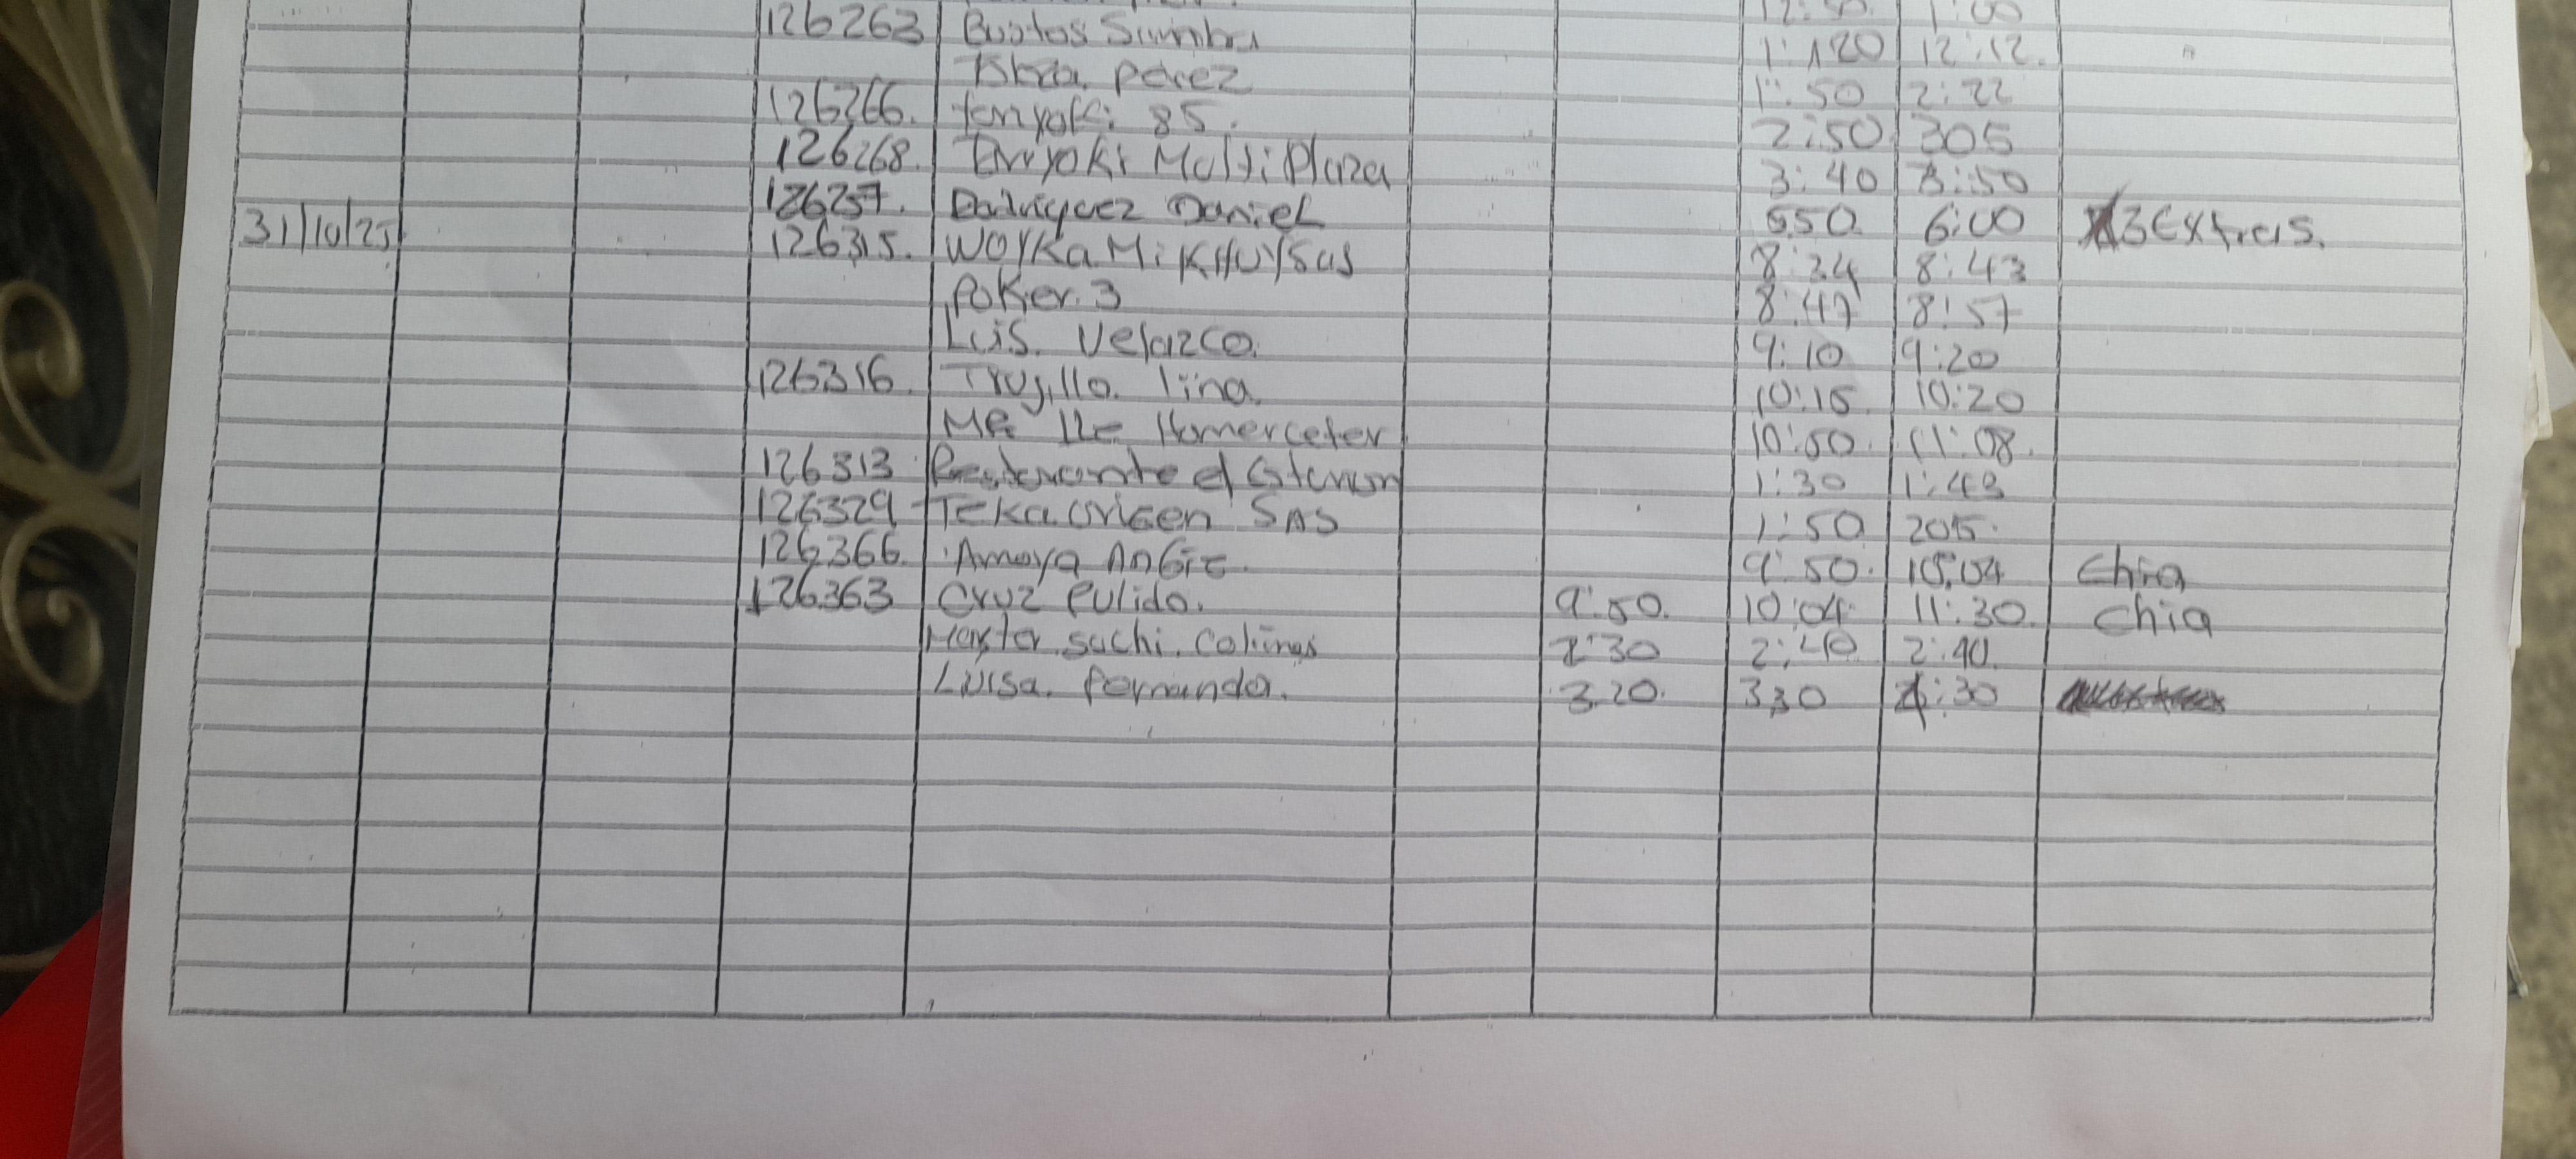 12:50. 1:00
126263 Bustos Sumba 1:120 12:12.
Perez 1:50 2:22
126266. 85. 2:50 305
126268. Multi Plaza 3:40 3:50
126257. Daniel 550. 6:00 3 Extras.
31/10/25 126315. WOYKa Mi KHUY Sas 8:34 8:43
Poker. 3 8:47 8:57
Luis. Velazco. 9:10 9:20
126316. Trujillo. lina. 10:15. 10:20
Homerceter 10:50. 11:08.
126313 el 1:30 1:43
126329 Teka origen SAS 1:50 205.
126366. Amaya AnGiE. 9:50. 10:04 Chia
126363 Cruz Pulido. 9:50. 10:04. 11:30. Chia
Master suchi. Colinas 2:30 2:40 2:40.
Luisa. fernanda. 3.20. 330 4:30